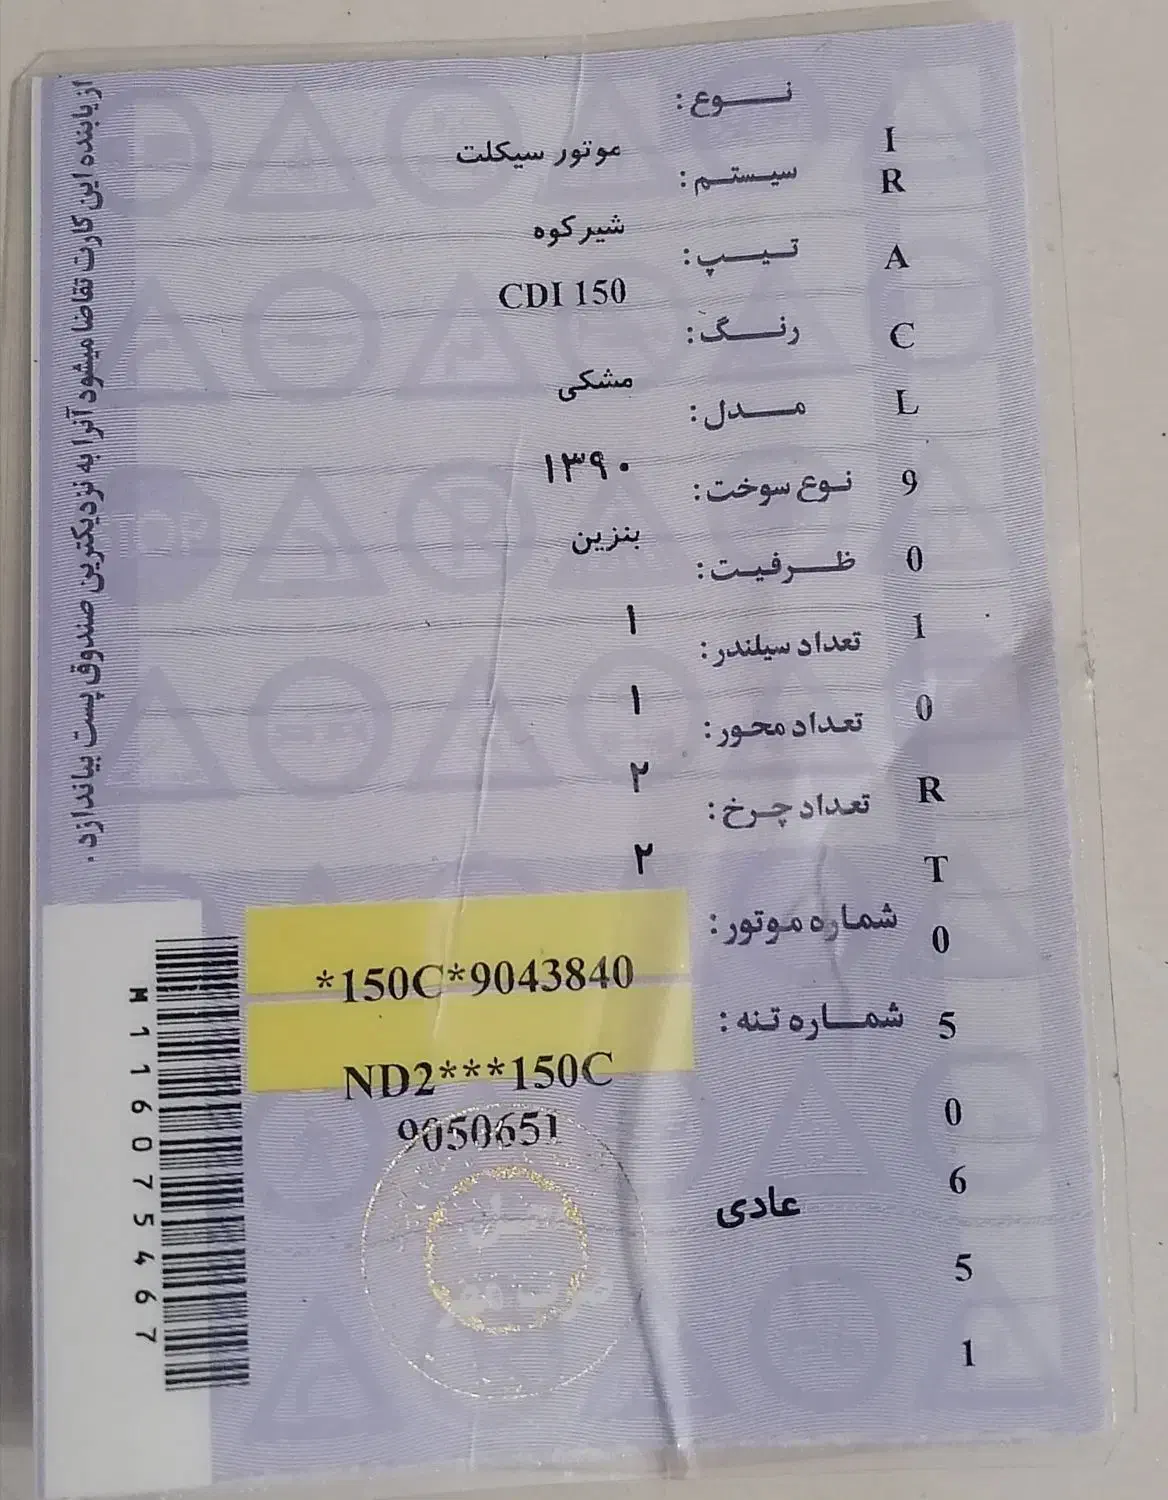 نوع:
موتور سیکلت
سیستم:
شیرکوه
تیپ:
CDI 150
رنگ:
مشکی
مدل:
۱۳۹۰
نوع سوخت:
بنزین
ظرفیت:
۱
تعداد سیلندر:
۱
تعداد محور:
۲
تعداد چرخ:
۲
شماره موتور:
*150C*9043840
شماره تنه:
ND2***150C
9050651
عادی
I
R
A
C
L
9
0
1
0
R
T
0
5
0
6
5
1
ازیابنده این کارت تقاضا میشود آنرا به نزدیکترین صندوق پست بیاندازد.
M116075467